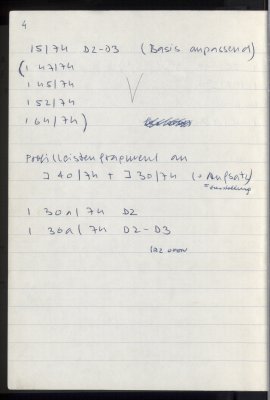 4
15/74 D2-D3 (Basis anpassend)
( I 47/74
I 45/74
I 52/74
I 64/74 )
Profilleistenfragment an
I 40/74 + I 30/74 (+ Aufsatz)
I 30a/74 D2
I 30a/74 D2-D3